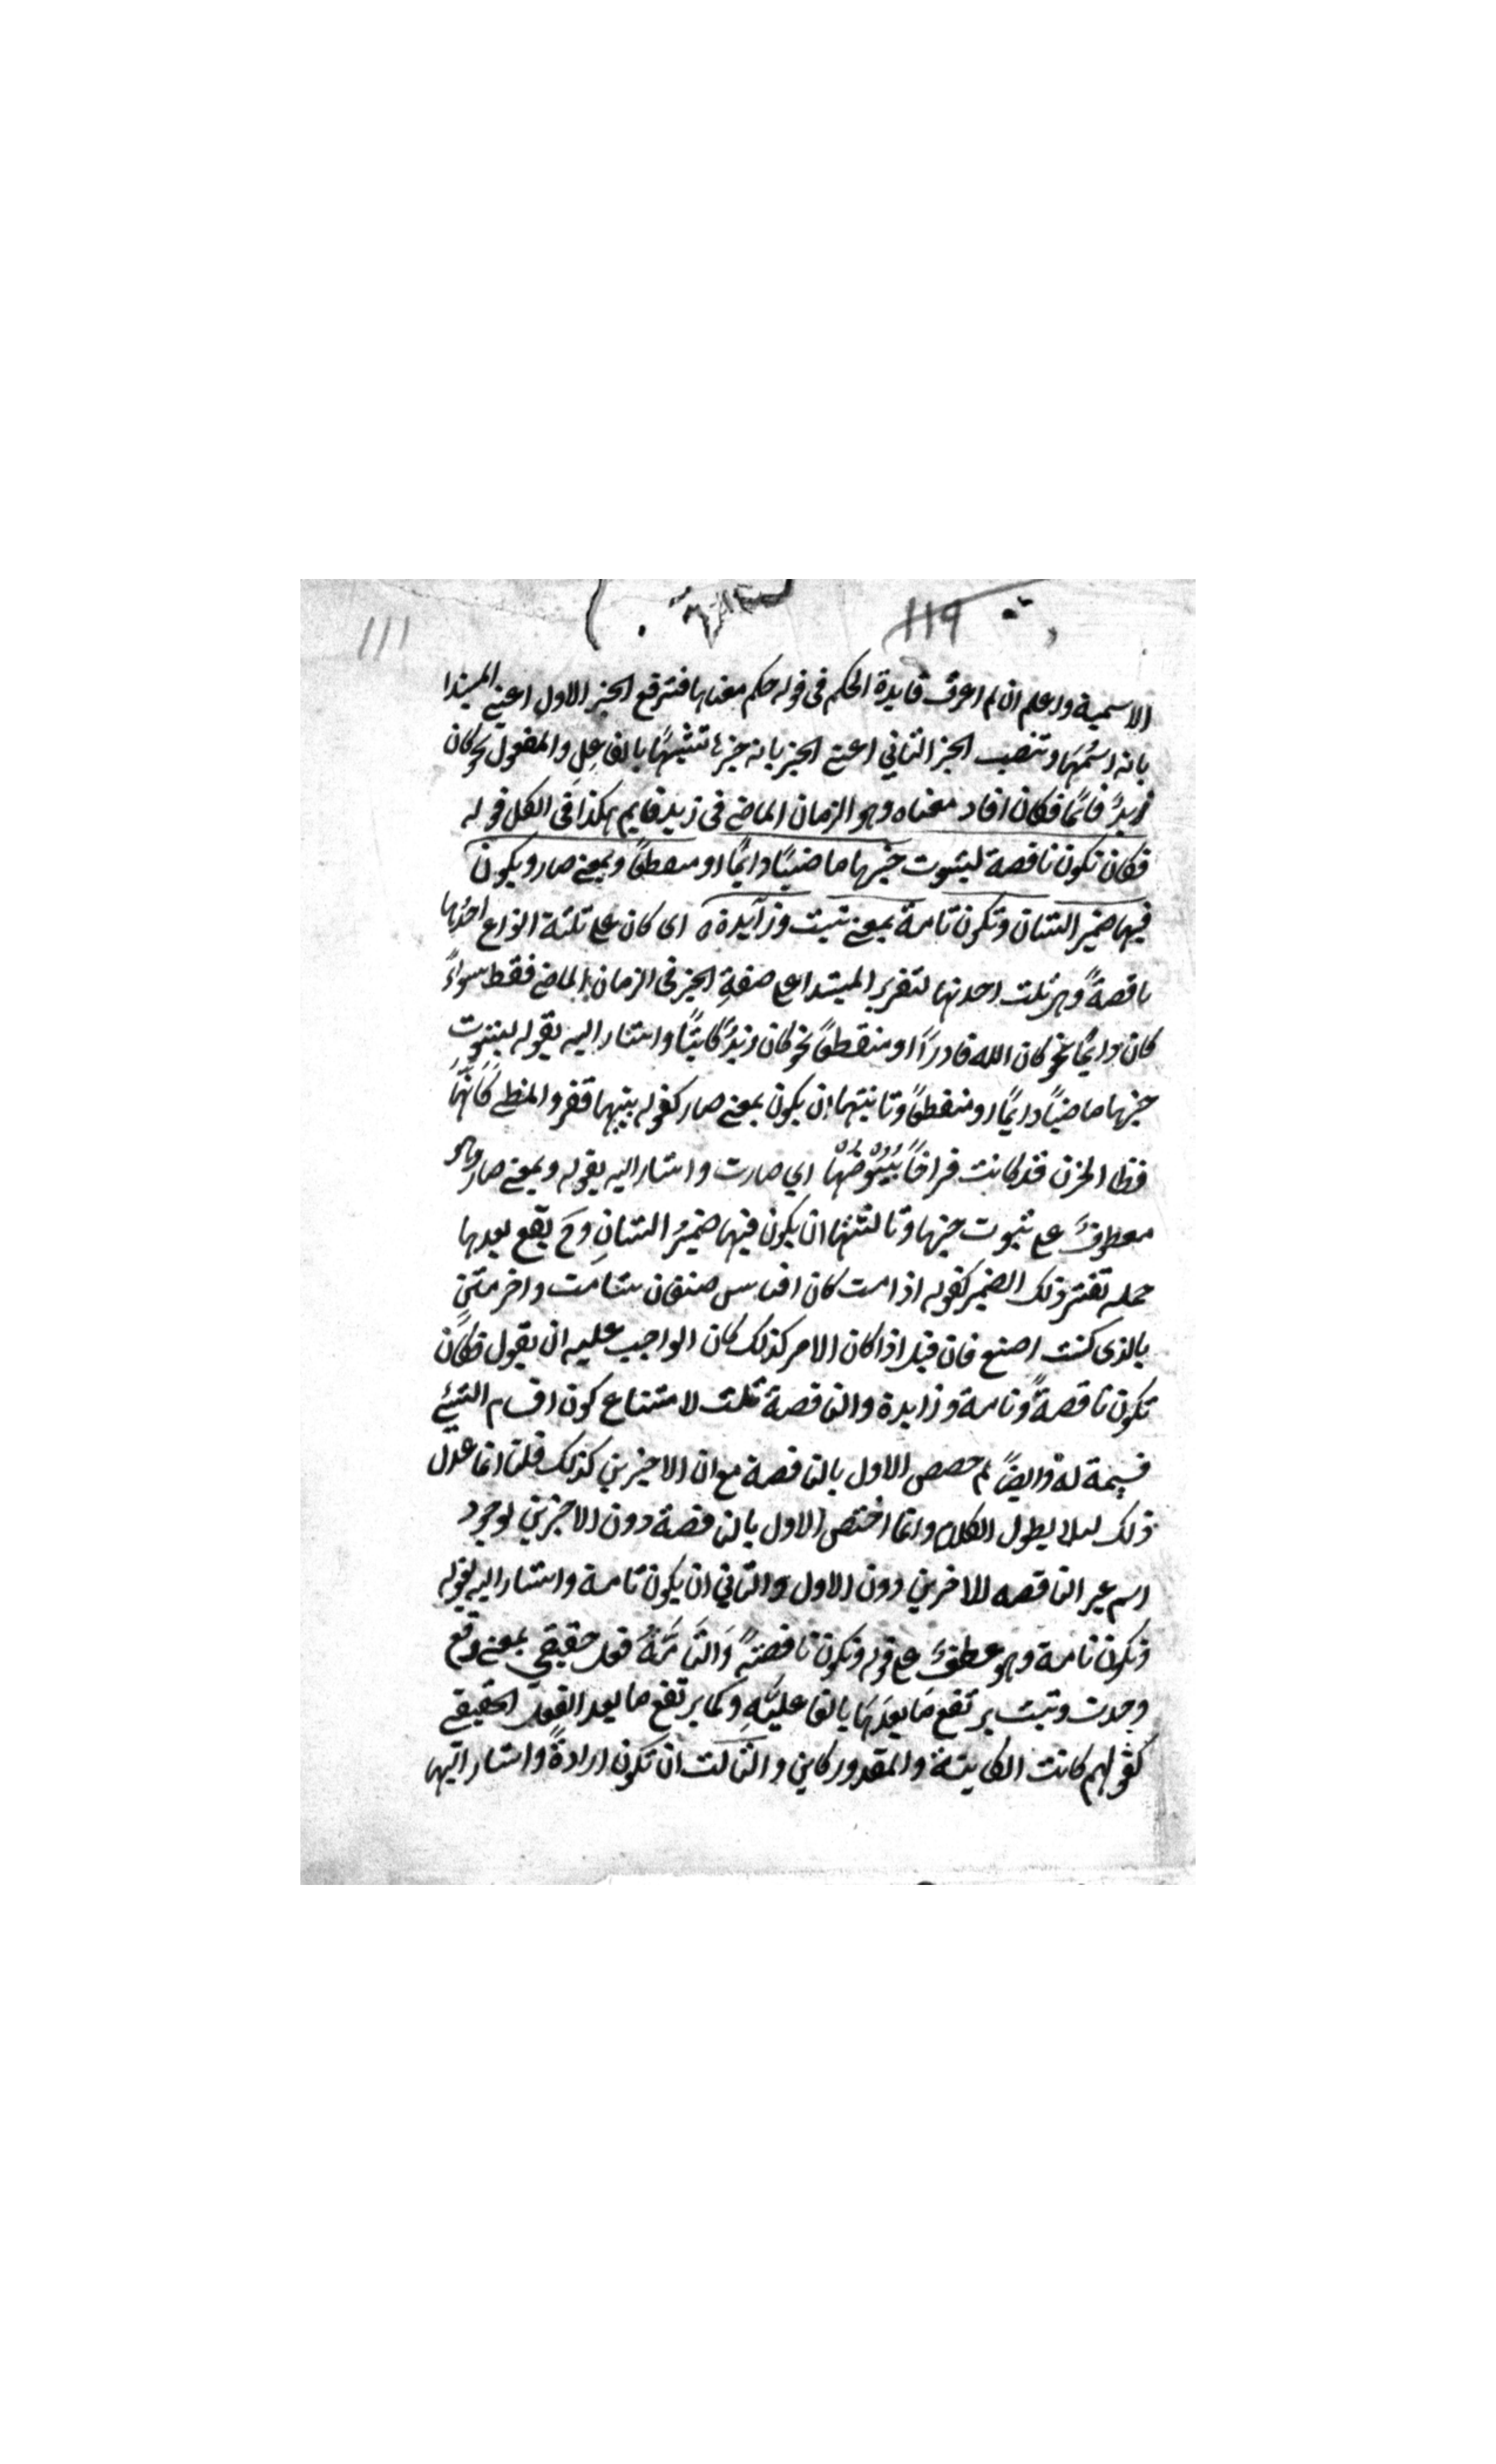 119
111
الاسمية واعلم ان لم اعرف فايدة الحكم فى قوله حكم معناها فترفع الجز الاول اعنى المبتدا
بانه اسمُهَا وتنصب الجز الثاني اعنى الخبر بانه خبرها تشبيهًا بالفاعِلِ والمفعول نحو كان
زيدٌ قائمًا فكان افاد معناه وهو الزمان الماضى فى زيد قايم هكذا فى الكل قوله
فكان تكون ناقصة لثبوت خبرها ماضيًا دائمًا او منقطعًا وبمعنى صار ويكون
فيها ضمير الشان وتكون تامة بمعنى ثبت وزآيدة ه اى كان على ثلثة انواع احدُها
ناقصةً وهى ثلث احدىها لتقرير المبتدا على صفةِ الخبر فى الزمان الماضى فقط سواءً
كان دايمًا نحو كان الله قادرًا او منقطعًا نحو كان زيدٌ كاتبًا واشار اليه بقوله لثبوتِ
خبرها ماضيًا دايمًا او منقطعًا وثانيتها ان يكون بمعنى صار كقوله بتيهاء قفر والمطى كَاَنّهَا
قطا الحزن قد كانت فراخًا بُيُوضُهَا اي صارت واشار اليه بقوله وبمعنى صار وهو
معطوفٌ على ثبوت خبرها وثالثتها ان يكون فيها ضميرُ الشانِ وح يقع بعدها
جمله تفسر ذلك الضمير كقوله اذا مت كان الناس صنفان شامت واخر مثنٍ
بالذى كنت اصنع فان قيل اذا كان الامر كذلك كان الواجب عليه ان يقول فكان
تكون ناقصةً وتامة وزايدة والناقصة ثلث لامتناع كون اقسام الشئ
قسيمة له وايضًا لم خصص الاول بالناقصة مع ان الاخيرين كذلك قلنا انما عدل
ذلك ليلا يطول الكلام وانما اختص الاول بالناقصة دون الاخيرين لوجود
اسم غير الناقصه للاخرين دون الاول والثاني ان يكون تامة واشار اليه بقوله
وتكون تامة وهو عطفٌ على قوله وتكون ناقصةً وَالتَامّةُ فعل حقيقى بمعنى وقع
وحدث وثبت يرتفع مَا بعدَهَا بالفاعليّةِ وكما يرتفع ما بعد الفعل الحقيقى
كقولهم كانت الكاينة والمقدور كاين والثالث ان تكون زايدةً واشار اليها